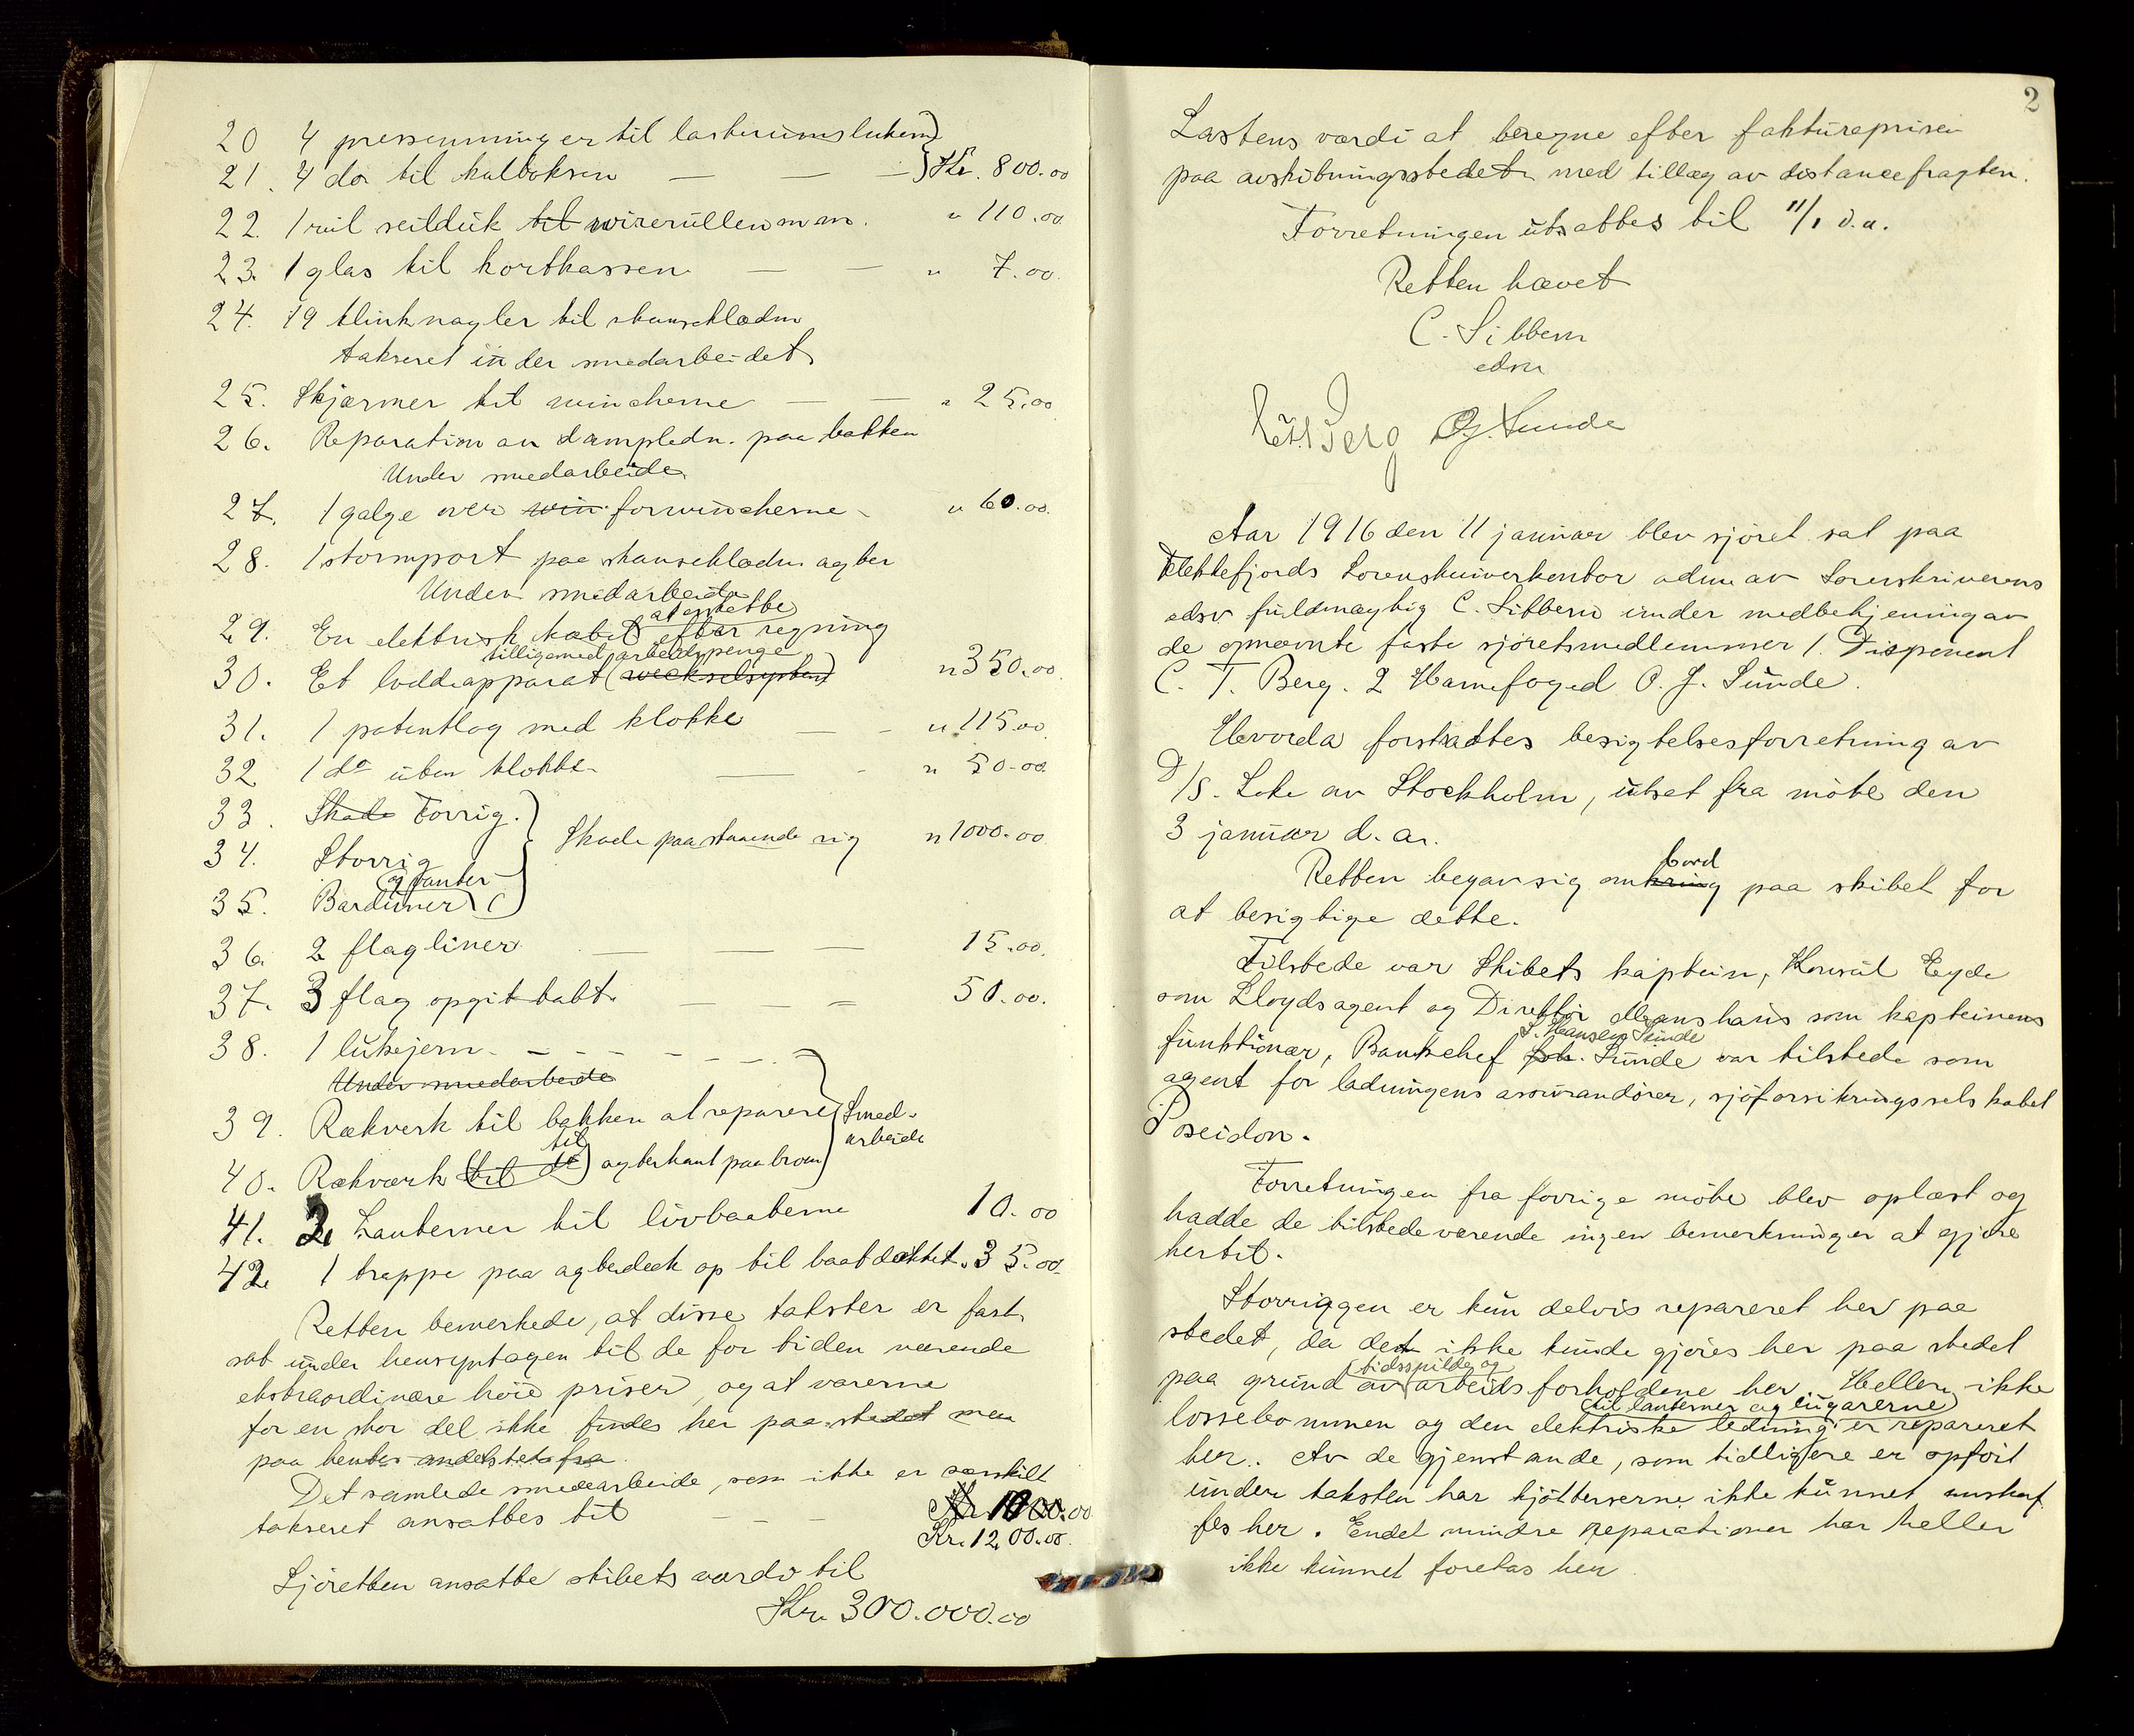 20 4 pressenninger til lasterumsluken }
21. 4 do til kulboksen — — — } Kr. 800.00
22. 1 rul seilduk til wirerullen m m. " 110.00
23. 1 glas til kortkassen — — " 7.00
24. 19 klinknagler til skanseklædn
takseret under smedarbeidet
25. Skjærmer til wincherne — — " 25.00
26. Reparation av dampledn. paa bakken
Under smedarbeide
27. 1 galge over win forwincherne - " 60.00.
28. 1 stormport paa skanseklædn. agter
Under smedarbeide
at ansætte
29. En elektrisk kabel efter regning
tilligemed arbeidspenge
30. Et loddeapparat (weckselsystem) " 350.00
31. 1 patentlog med klokke — - " 115.00
32 1 do uten klokke — - " 50.00
33. Skade Forrig. }
34. Storrig } Skade paa staaende rig " 1000.00
og vanter
35. Barduner }
36. 2 flagliner — — — 15.00.
37. 3 flag opgit tabt. — — — 50.00.
38. 1 lukejern - - - - - - -
Under smedarbeide
39. Rækverk til bakken at reparere } Smed-
til arbeide
40. Rækverk (til do) agterkant paa broen }
41. 2 Lanterner til livbaaterne 10.00
42. 1 trappe paa agterdeck op til baatdækket " 35.00
Retten bemerkede, at disse takster er fast
sat under hensyntagen til de for tiden værende
ekstraordinære høie priser, og at varerne
for en stor del ikke findes her paa stedet men
paa hentes andetstetsfra
Det samlede smedearbeide, som ikke er særskilt
Kr 1000.00
takseret ansættes til - - - Kr. 1200.00.
Sjøretten ansatte skibets værdi til
Kr. 300.000.00
2
Lastens værdi at beregne efter fakturaprisen
paa avskibningsstedet med tillæg av distancefragten.
Forretningen utsattes til 11/1 d.a.
Retten hævet
C. Sibbern
edsv
C.T. Berg O.J. Sunde
Aar 1916 den 11 januar blev sjøret sat paa
Flekkefjords Sorenskriverkontor adm av Sorenskriverens
edsv fuldmægtig C. Sibbern under medbetjening av
de opnævnte faste sjøretsmedlemmer 1. Disponent
C. T. Berg. 2 Havnefoged O. J. Sunde.
Hvorda forsattes besigtelsesforretning av
D/S. Loke av Stockholm, utsat fra møte den
3 januar d. a.
bord
Retten begav sig omkring paa skibet for
at besigtige dette.
Tilstede var Skibets kaptein, Konsul Eyde
som Lloydsagent og Direktør Manshaus som kapteinens
S. Hansen Sunde
funktionær, Bankchef Joh. Sunde var tilstede som
agent for ladningens assurandører, sjøforsikringsselskabet
Poseidon.
Forretningen fra forrige møte blev oplæst og
hadde de tilstedeværende ingen bemerkninger at gjøre
hertil.
Storriggen er kun delvis repareret her paa
stedet, da det ikke kunde gjøres her paa stedet
tidsspilde og
paa grund av arbeidsforholdene her. Heller ikke
til lanterner og lugarerne
lossebommen og den elektriske ledning er repareret
her. Av de gjenstande, som tidligere er opført
under taksten har kjøtterserne ikke kunnet anskaf
fes her. Endel mindre reparationer har heller
ikke kunnet foretas her